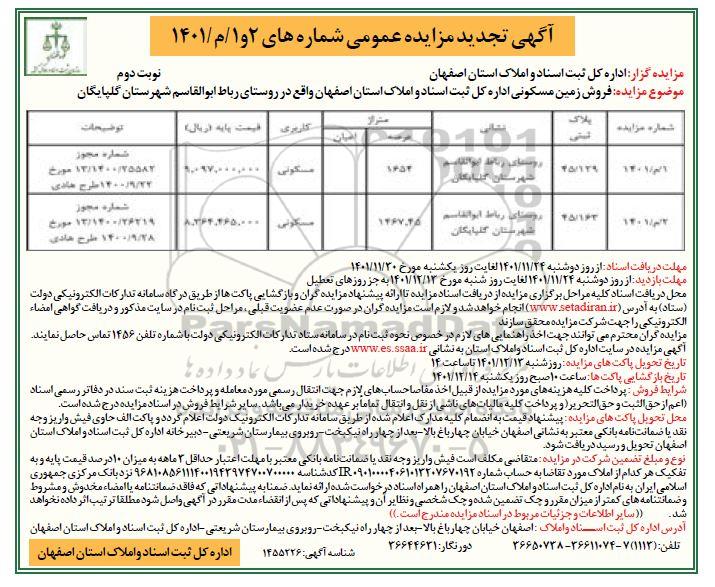 آگهی تجدید مزایده عمومی شماره های ۲و۱/م/۱۴۰۱
مزایده گزار: اداره کل ثبت اسناد و املاک استان اصفهان نوبت دوم
موضوع مزایده: فروش زمین مسکونی اداره کل ثبت اسناد و املاک استان اصفهان واقع در روستای رباط ابوالقاسم شهرستان گلپایگان
شماره مزایده پلاک ثبتی نشانی متراژ عرصه اعیان کاربری قیمت پایه (ریال) توضیحات
۱/م/۱۴۰۱ ۴۵/۱۳۹ روستای رباط ابوالقاسم شهرستان گلپایگان ۱۶۵۴ مسکونی ۹,۰۹۷,۰۰۰,۰۰۰ شماره مجوز ۱۳/۱۴۰۰/۲۵۵۸۲ مورخ ۱۴۰۰/۹/۲۲ طرح هادی
۲/م/۱۴۰۱ ۴۵/۱۶۳ روستای رباط ابوالقاسم شهرستان گلپایگان ۱۴۶۷.۴۵ مسکونی ۸,۳۶۴,۴۶۵,۰۰۰ شماره مجوز ۱۳/۱۴۰۰/۲۶۲۱۹ مورخ ۱۴۰۰/۹/۲۸ طرح هادی
مهلت دریافت اسناد: از روز دوشنبه ۱۴۰۱/۱۱/۲۴ لغایت روز یکشنبه مورخ ۱۴۰۱/۱۱/۳۰
مهلت بازدید: از روز دوشنبه ۱۴۰۱/۱۱/۲۴ لغایت روز شنبه مورخ ۱۴۰۱/۱۲/۱۳ به جز روزهای تعطیل
محل دریافت اسناد کلیه مراحل برگزاری مزایده از دریافت اسناد مزایده تا ارائه پیشنهاد مزایده گران و بازگشایی پاکت ها از طریق درگاه سامانه تدارکات الکترونیکی دولت
(ستاد) به آدرس (www.setadiran.ir) انجام خواهد شد و لازم است مزایده گران در صورت عدم عضویت قبلی، مراحل ثبت نام در سایت مذکور و دریافت گواهی امضاء
الکترونیکی را جهت شرکت مزایده محقق سازند
مزایده گران محترم می توانند جهت اخذ راهنمایی های لازم در خصوص نحوه ثبت نام در سامانه ستاد تدارکات الکترونیکی دولت با شماره تلفن ۱۴۵۶ تماس حاصل نمایند.
آگهی مزایده در سایت اداره کل ثبت اسناد و املاک استان به نشانی www.es.ssaa.ir درج شده است.
تاریخ تحویل پاکت های مزایده: روز شنبه ۱۴۰۱/۱۲/۱۳ تا ساعت ۱۴
تاریخ بازگشایی پاکت ها: ساعت ۱۰ صبح روز یکشنبه ۱۴۰۱/۱۲/۱۴
شرایط فروش: پرداخت کلیه هزینه های مورد مزایده از قبیل اخذ مفاصاحساب های لازم جهت انتقال رسمی مورد معامله و پرداخت هزینه ثبت سند در دفاتر رسمی اسناد
(اعم از حق الثبت و حق التحریر) و پرداخت کلیه مالیات های ناشی از نقل و انتقال تماما بر عهده خریدار می باشد. سایر شرایط فروش در اسناد مزایده درج شده است.
محل تحویل پاکت های مزایده: پیشنهاد قیمت به انضمام کلیه مدارک اعلام شده از طریق سامانه تدارکات الکترونیک دولت اعلام گردد و پاکت الف حاوی فیش واریز وجه
نقد یا ضمانت نامه بانکی معتبر به نشانی اصفهان خیابان چهارباغ بالا-بعد از چهار راه نیکبخت-روبروی بیمارستان شریعتی-دبیرخانه اداره کل ثبت اسناد و املاک استان
اصفهان تحویل و رسید دریافت شود.
نوع و مبلغ تضمین شرکت در مزایده: متقاضی مکلف است فیش واریز وجه نقد یا ضمانت نامه بانکی معتبر با مهلت اعتبار حداقل ۳ ماهه به میزان ۱۰درصد قیمت پایه و به
تفکیک هر کدام از املاک مورد تقاضا به حساب شماره IR۰۹۰۱۰۰۰۰۴۰۶۱۰۱۳۲۰۷۶۷۰۱۹۲ کدشناسه ۹۶۸۱۰۸۵۶۱۱۱۴۰۰۱۹۴۲۹۷۴۷۰۰۷۰۰۰۰۰ نزد بانک مرکزی جمهوری
اسلامی ایران به نام اداره کل ثبت اسناد و املاک استان اصفهان را همراه اسناد درخواست شده ارائه نماید. ضمنا به پیشنهاداتی که فاقد ضمانتنامه یا امضاء مخدوش و مشروط
و ضمانتنامه های کمتر از میزان مقرر و چک تضمین شده و چک شخصی و نظایر آن و پیشنهاداتی که پس از انقضاء مدت مقرر در آگهی واصل شود مطلقا ترتیب اثر داده نخواهد
شد. ((سایر اطلاعات و جزئیات مربوط در اسناد مزایده مندرج است.))
آدرس اداره کل ثبت اسناد و املاک: اصفهان خیابان چهارباغ بالا-بعد از چهار راه نیکبخت-روبروی بیمارستان شریعتی-اداره کل ثبت اسناد و املاک استان اصفهان
تلفن: (۱۱۱۳)۷-۳۶۶۱۱۰۷۴-۳۶۶۵۰۷۳۸ دورنگار: ۳۶۶۴۴۶۳۱
شناسه آگهی: ۱۴۵۵۲۲۶
اداره کل ثبت اسناد و املاک استان اصفهان